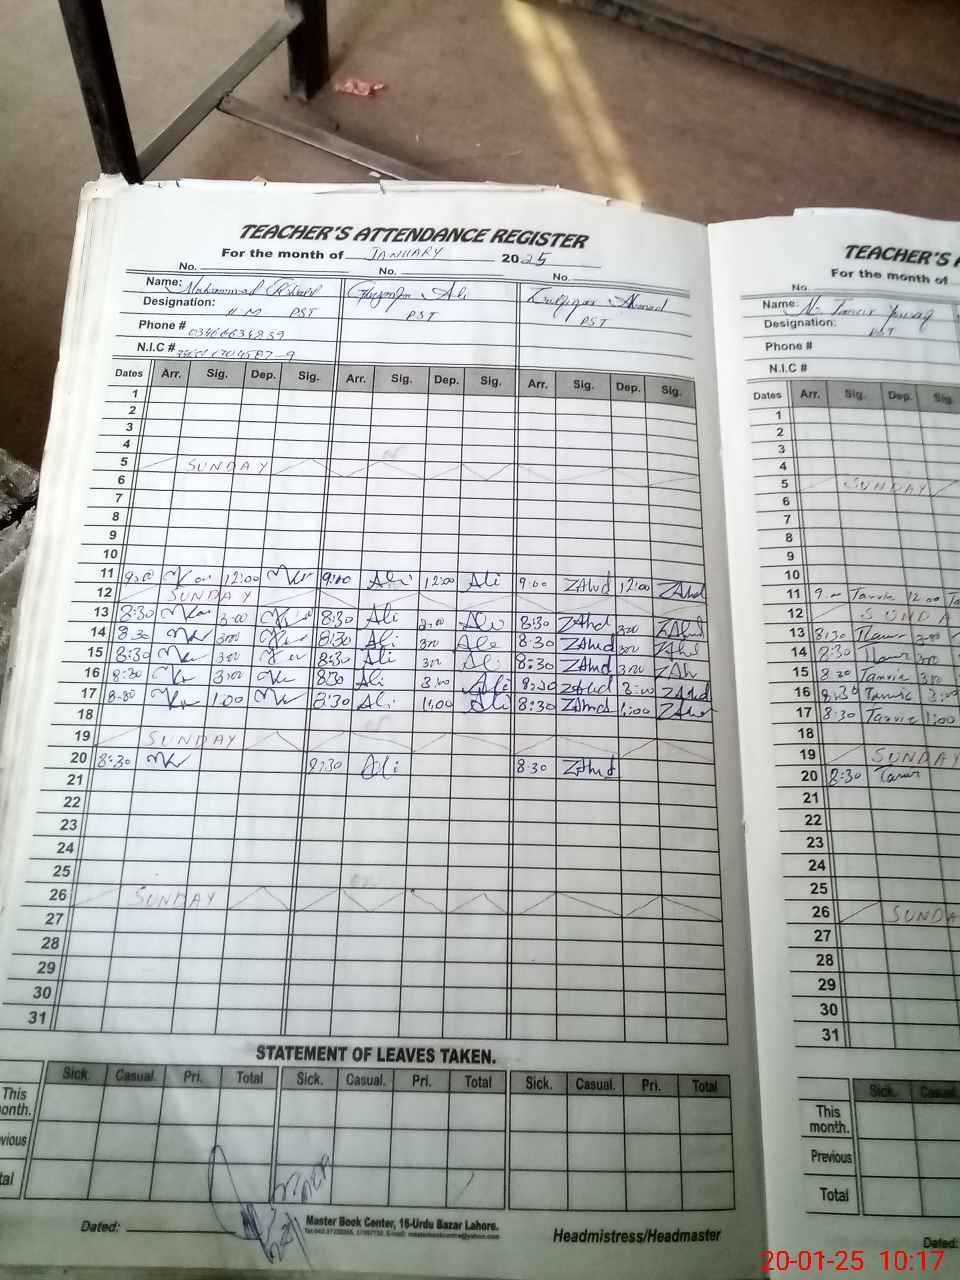 TEACHER'S ATTENDANCE REGISTER
For the month of JANUARY 2025
No. No. No.
Name: Muhammad Ali Ahmad
Designation: H M PST PST PST
Phone #
N.I.C #
Dates Arr. Sig. Dep. Sig. Arr. Sig. Dep. Sig. Arr. Sig. Dep. Sig.
1
2
3
4
5 SUNDAY
6
7
8
9
10
11 9:00 12:00 9:00 Ali 12:00 Ali 9:00 ZAhd 12:00 ZAhd
12 SUNDAY
13 8:30 3:00 8:30 Ali 3:00 Ali 8:30 ZAhd 3:00 ZAhd
14 8:30 3:00 8:30 Ali 3:00 Ali 8:30 ZAhd 3:00 ZAhd
15 8:30 3:00 8:30 Ali 3:00 Ali 8:30 ZAhd 3:00 ZAhd
16 8:30 3:00 8:30 Ali 3:00 Ali 8:30 ZAhd 3:00 ZAhd
17 8:30 1:00 8:30 Ali 1:00 Ali 8:30 ZAhd 1:00 ZAhd
18
19 SUNDAY
20 8:30 8:30 Ali 8:30 ZAhd
21
22
23
24
25
26 SUNDAY
27
28
29
30
31
STATEMENT OF LEAVES TAKEN.
Sick. Casual. Pri. Total Sick. Casual. Pri. Total Sick. Casual. Pri. Total
This
onth.
vious
tal
Dated:
Master Book Center, 16-Urdu Bazar Lahore.
Headmistress/Headmaster
TEACHER'S A
For the month of
No.
Name: M.
Designation: PST
Phone #
N.I.C #
Dates Arr. Sig. Dep. Sig.
1
2
3
4
5 SUNDAY
6
7
8
9
10
11 9:00 12:00
12 SUNDA
13 8:30 3:00
14 8:30 3:00
15 8:30 3:00
16 8:30 3:
17 8:30 1:00
18
19 SUNDAY
20 8:30
21
22
23
24
25
26 SUNDA
27
28
29
30
31
Sick. Casual
This
month.
Previous
Total
Dated:
20-01-25 10:17